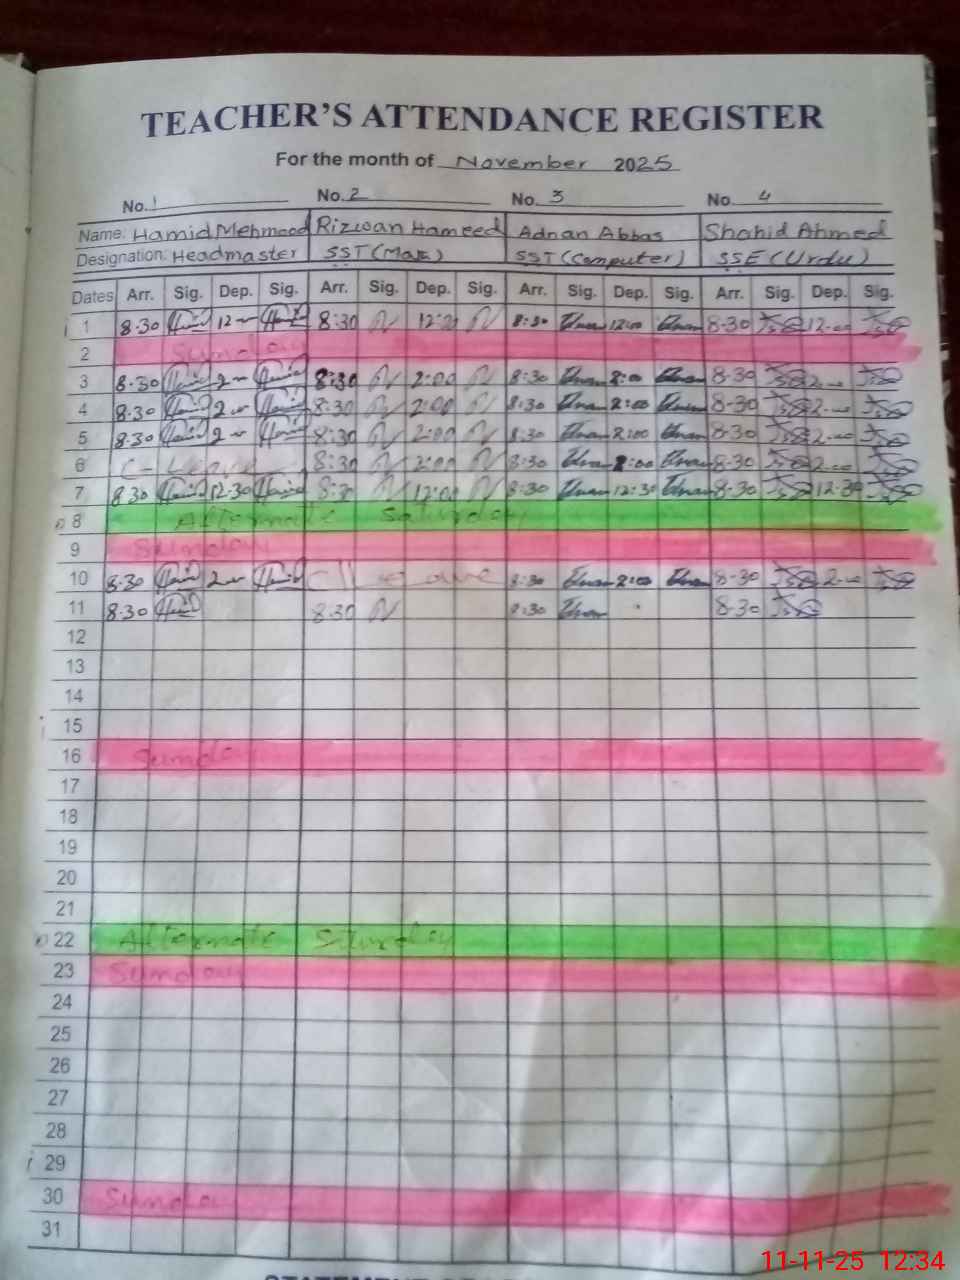 TEACHER'S ATTENDANCE REGISTER
For the month of November 2025
No. 1 No. 2 No. 3 No. 4
Name: Hamid Mehmood Rizwan Hameed Adnan Abbas Shahid Ahmed
Designation: Headmaster SST (Computer) SSE (Urdu)
Dates Arr. Sig. Dep. Sig. Arr. Sig. Dep. Sig. Arr. Sig. Dep. Sig. Arr. Sig. Dep. Sig.
1 8.30 12 8:30 8:30 12:00 8-30 12-00
2 Sunday
3 8.30 2 8:30 2:00 8:30 2:00 8-30 2-00
4 8.30 2 8:30 2:00 8:30 2:00 8-30 2-00
5 8.30 2 8:30 2:00 8:30 2:00 8-30 2-00
6 C-Leave 8:30 2:00 8:30 2:00 8-30 2-00
7 8.30 12.30 8:30 12:00 8:30 12:30 8-30 12-30
8 Alternate Saturday
9 Sunday
10 8.30 2 Leave 8:30 2:00 8-30 2-00
11 8.30 8:30 8:30 8-30
12
13
14
15
16 Sunday
17
18
19
20
21
22 Alternate Saturday
23 Sunday
24
25
26
27
28
29
30 Sunday
31
11-11-25 12:34